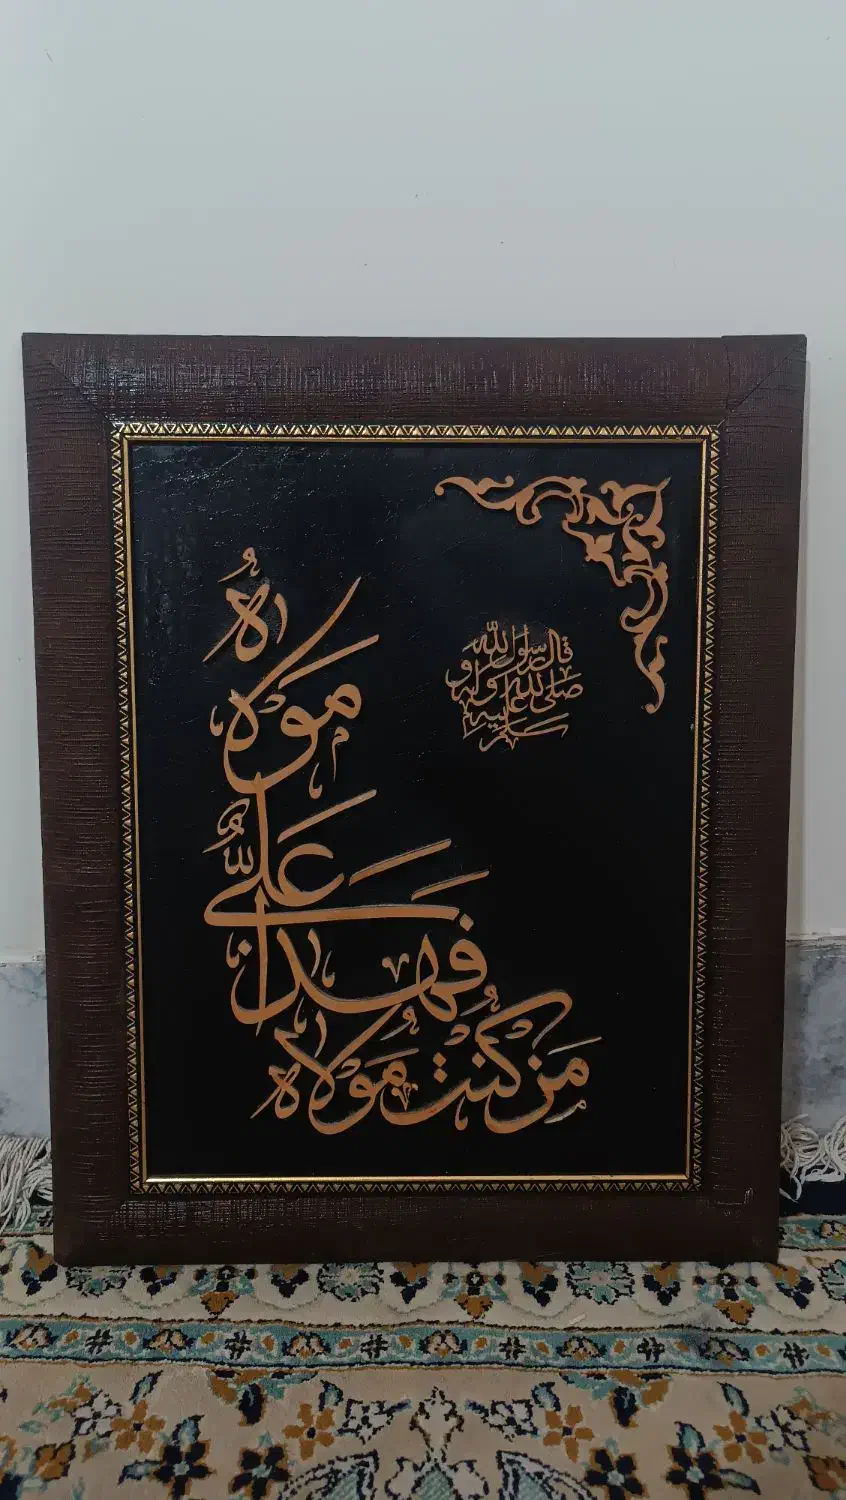 قال رسول الله
صلی الله علیه و اله و
سلم
من کنت مولاه
فهذا
علیٌّ
مولاه